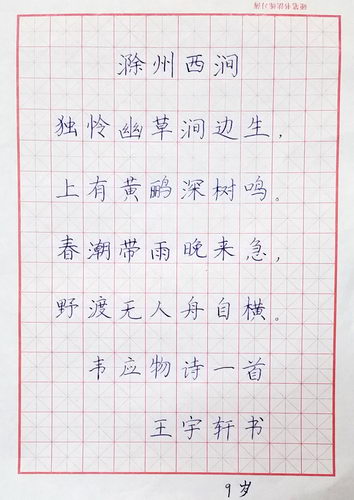 硬笔书法练习薄
滁州西涧
独怜幽草涧边生，
上有黄鹂深树鸣。
春潮带雨晚来急，
野渡无人舟自横。
韦应物诗一首
王宇轩书
9岁